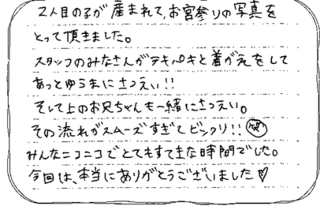 2人目の子が産まれて、お宮参りの写真を
とって頂きました。
スタッフのみなさんがテキパキと着がえをして
あっとゆうまにさつえい!!
そして上のお兄ちゃんも一緒にさつえい。
その流れがスムーズすぎてビックリ!!
みんなニコニコでとてもすてきな時間でした。
今回は、本当にありがとうございました♡